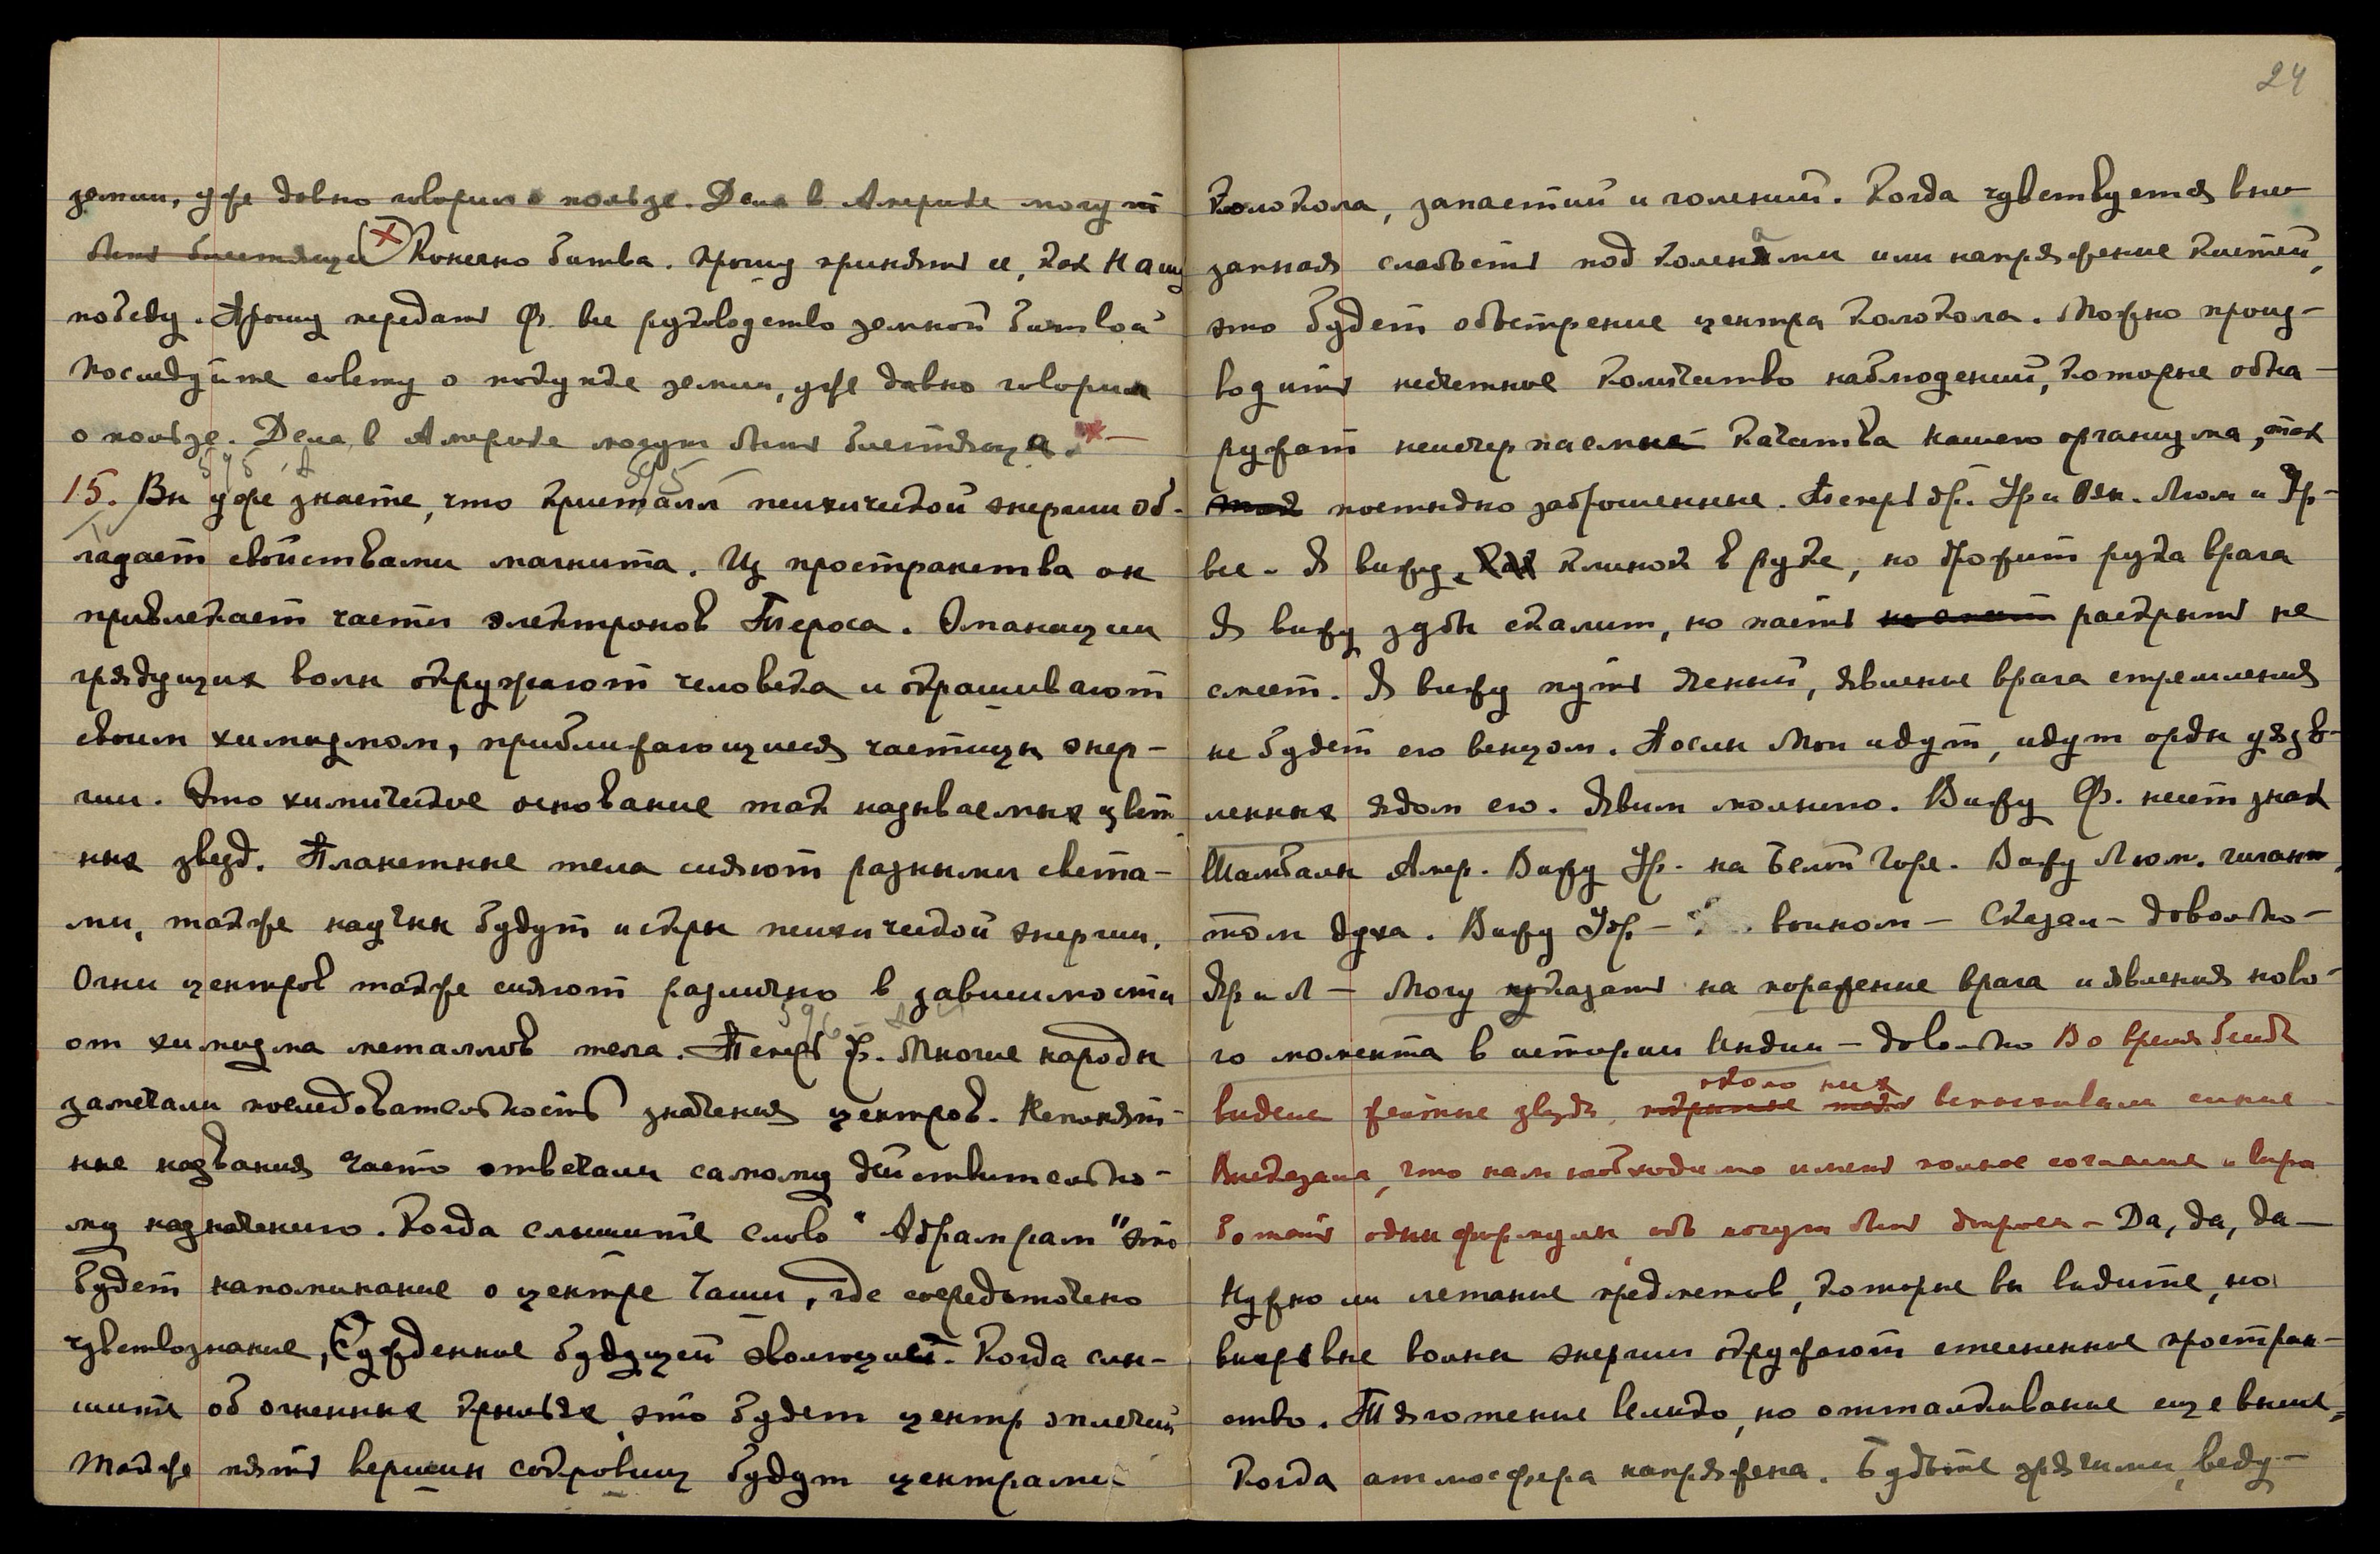 земли, уже давно говорил о пользе. Дела в Америке могут
быть блестящи Конечно битва. Прошу принять ее, как Нашу
победу. Прошу передать Ф. все руководство земной битвой
Последуйте совету о покупке земли, уже давно говорил
о пользе. Дела в Америке могут быть блестящи.
15. Вы уже знаете, что кристалл психической энергии об-
ладает свойствами магнита. Из пространства он
привлекает части электронов Тероса. Эманации
грядущих волн окружают человека и окрашивают
своим химизмом, приближающиеся частицы энер-
гии. Это химическое основание так называемых цвет
ных звезд. Планетные тела сияют разными света-
ми, также научны будут искры психической энергии.
Огни центров также сияют различно в зависимости
от химизма металлов тела. Теперь др. Многие народы
замечали последовательность значения центров. Непонят-
ные названия часто отвечали самому действительно-
му назначению. Когда слышите слово "Абрамрам" это
будет напоминание о центре Чаши, где сосредоточено
чувствознание, Сужденное будущей эволюцией. Когда слы-
шите об огненных крыльях, это будет центр оплечий
также пять вершин сокровищ будут центрами
24
Колокола, запастий и голений. Когда чувствуется вне-
запная слабость под коленами или напряжение кистей,
это будет обострение центра Колокола. Можно произ-
водить несчетное количество наблюдений, которые обна-
ружат неисчерпаемые качества нашего организма, так
так постыдно заброшенные. Теперь др. Ур и Оян. Люм и Яр-
все. Я вижу, как клинок в руке, но дрожит рука врага
Я вижу зубы скалит, но пасть не смеет раскрыть не
смеет. Я вижу путь ясный, явление врага стремления
не будет его венцом. Послы Мои идут, идут орды уязв-
ленных ядом его. Явим молнию. Вижу Ф. несет знак
Шамбалы Амер. Вижу Ур. на Белой Горе. Вижу Люм. гиган
том духа. Вижу Яр. - воином - Сказал - довольно -
Яр и Л - Могу указать на поражение врага и явления ново-
го момента в истории Индии - довольно Во время беседы
видела желтые звезды, около них вспыхивали синие
Высказала, что нам необходимо иметь полное согласие и вера
- Да, да, да -
Нужно ли летание предметов, которые вы видите, но
впервые волны энергии окружают стесненное простран-
ство. Тяготение велико, но отталкивание еще выше,
Когда атмосфера напряжена. Будьте зрячими, веду-